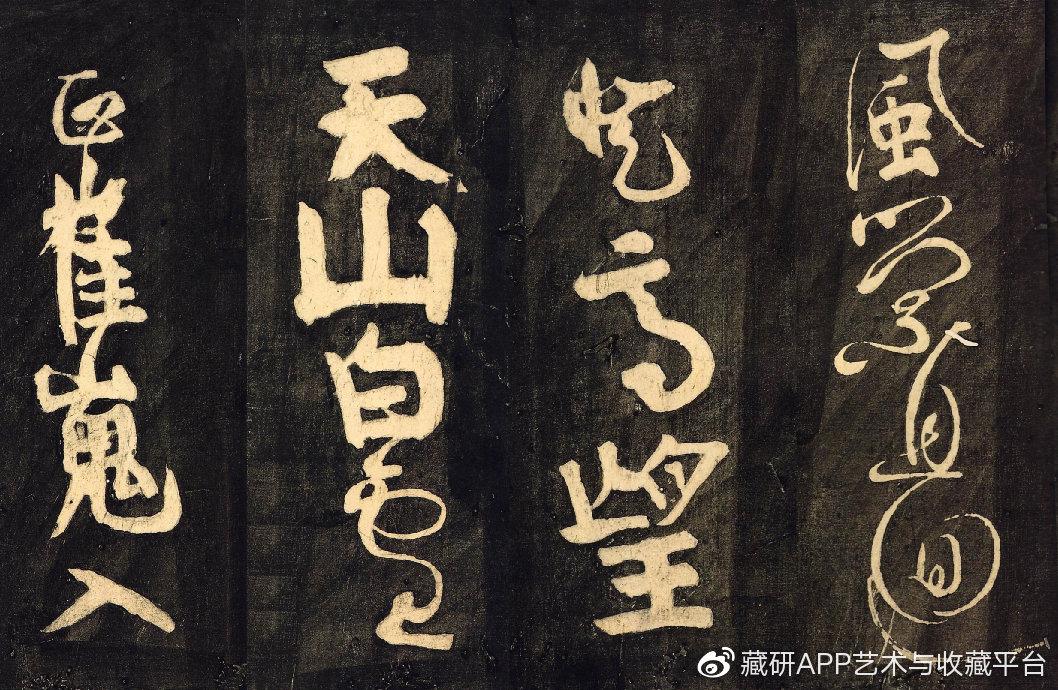 風縈且回
登高望
天山白雲
正崔嵬入
藏研APP艺术与收藏平台